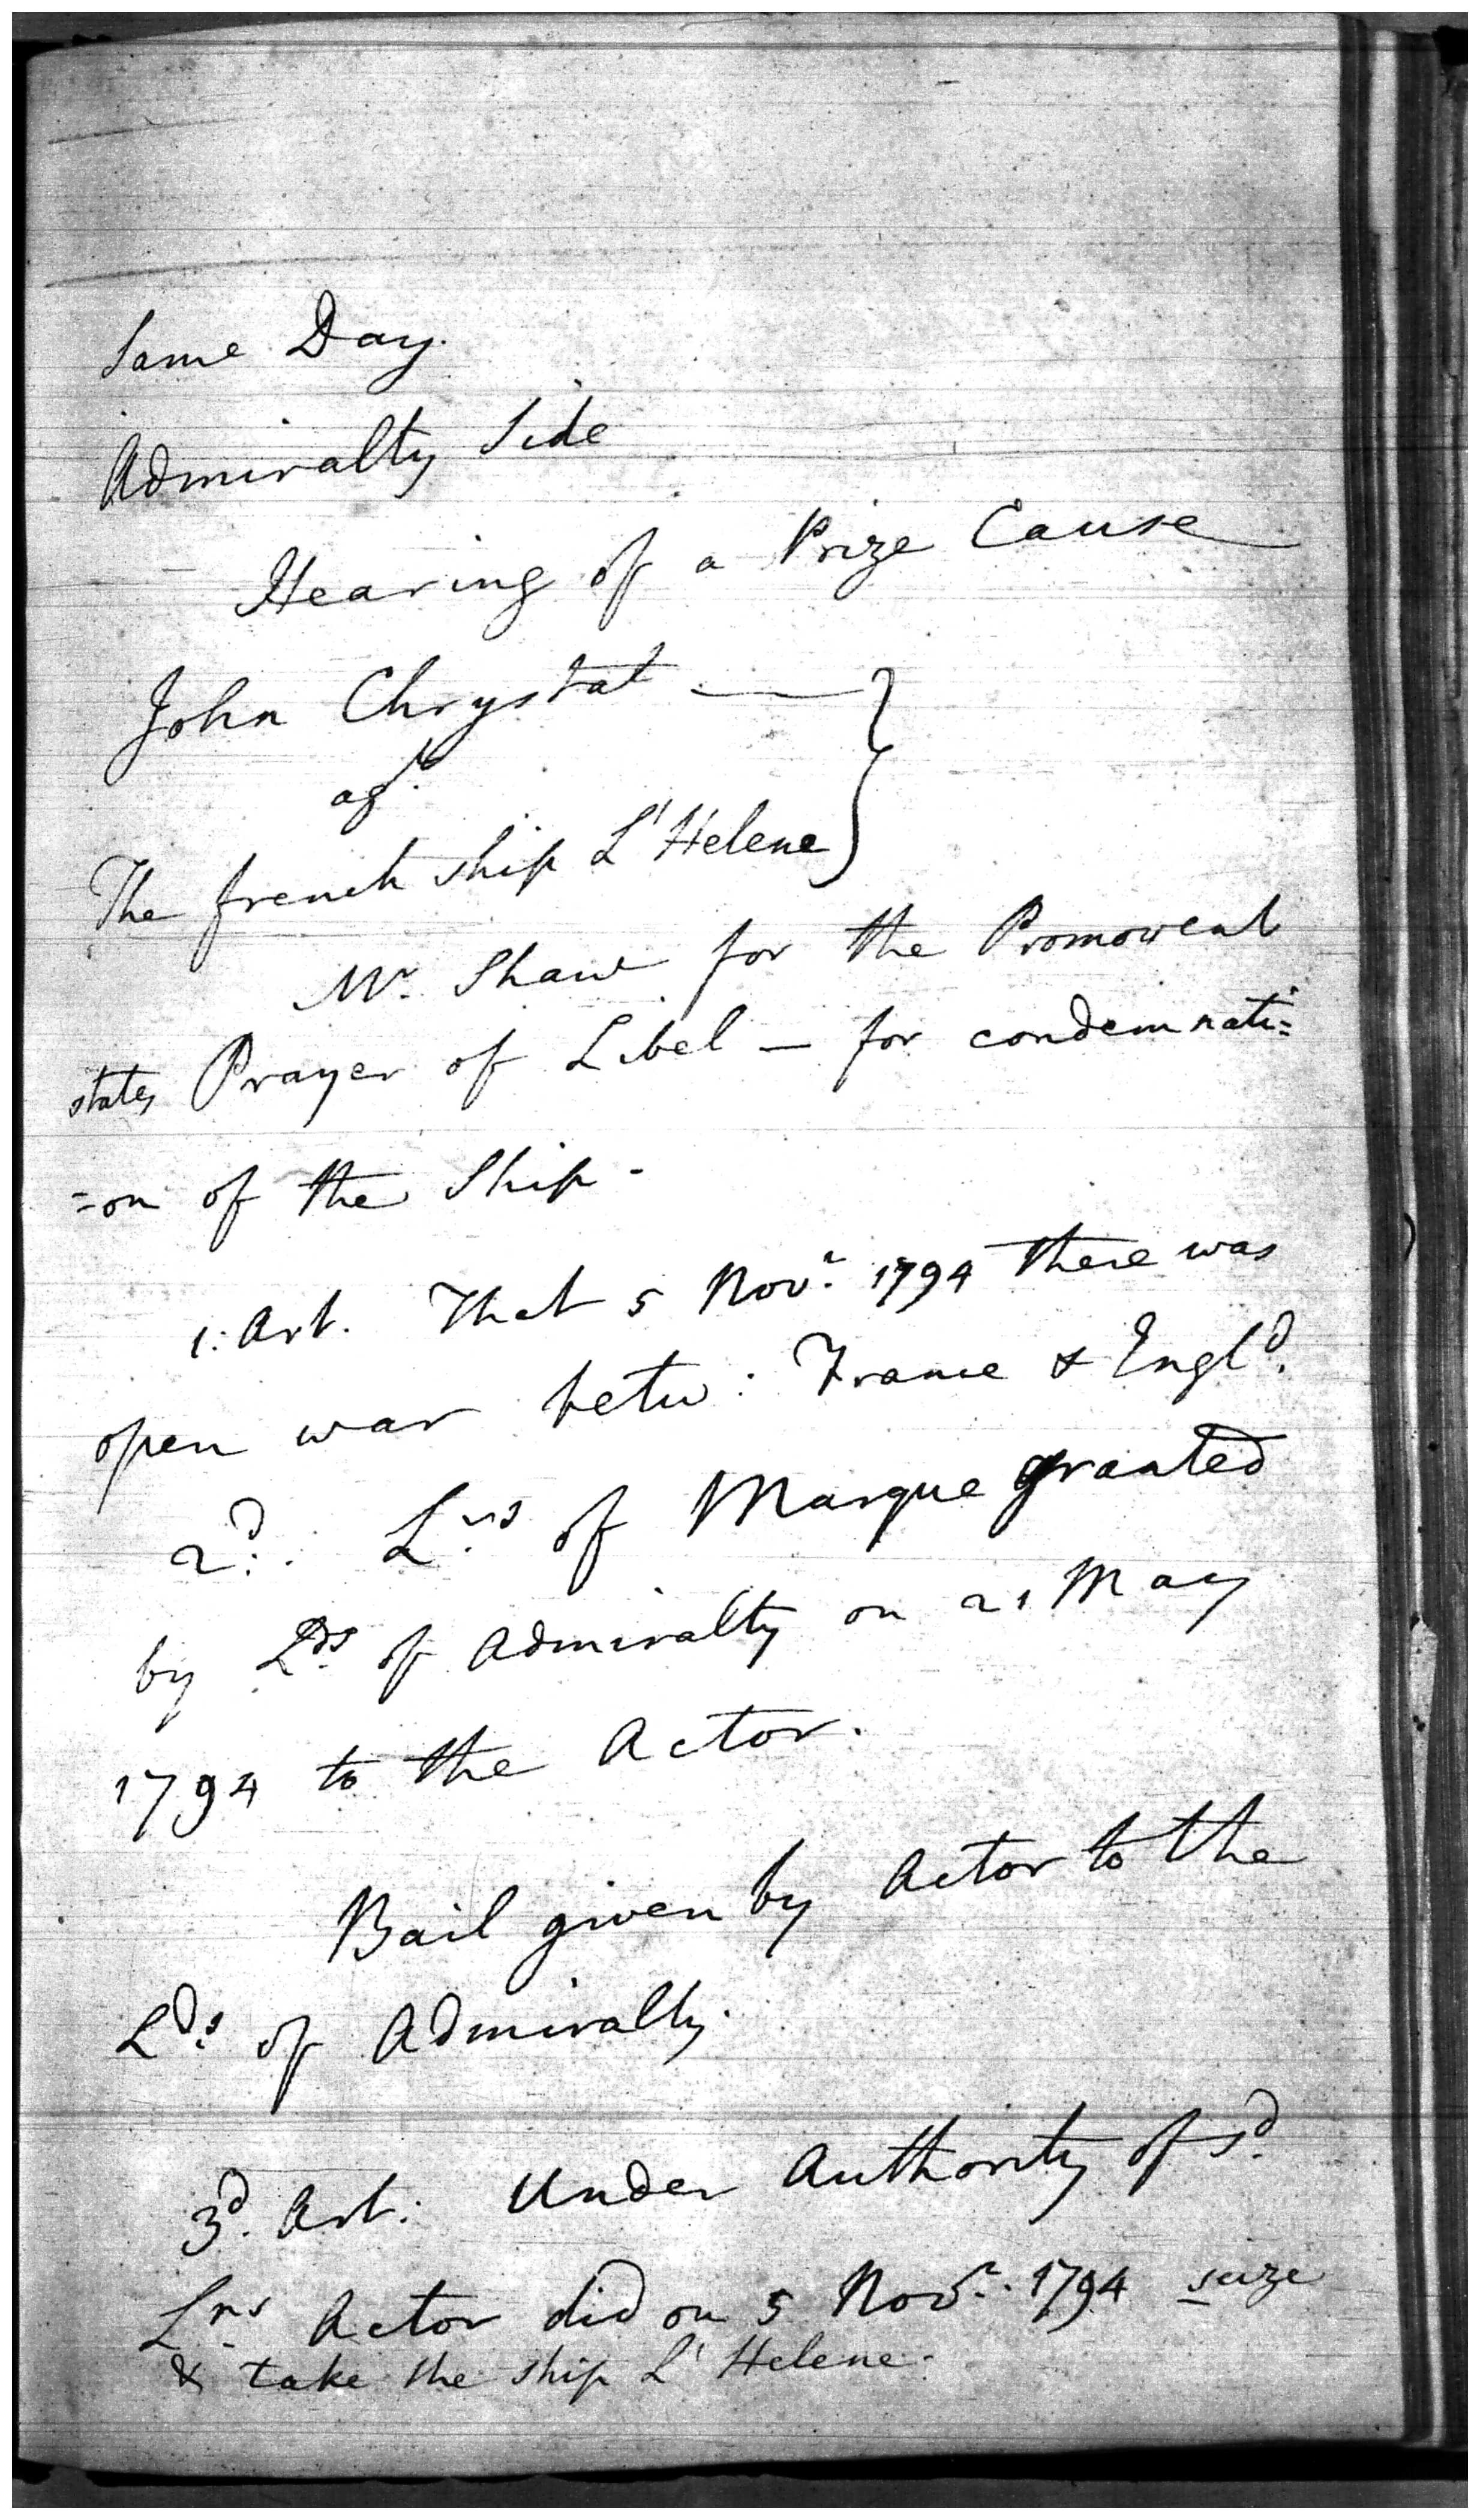 Same Day.
Admiralty Side
Hearing of a Prize Cause
John Chrystat —
agt.
The french ship L'Helene
Mr. Shaw for the Promovent
states Prayer of Libel — for condemnati=
=on of the Ship -
1. Art. That 5 Novr. 1794 there was
open war betw: France & Engld.
2d: Lrs of Marque granted
by Lds of Admiralty on 21 May
1794 to the Actor.
Bail given by Actor to the
Lds. of Admiralty.
3d. Art: Under Authority of sd.
Lrs Actor did on 5 Novr. 1794 seize
& take the ship L'Helene.